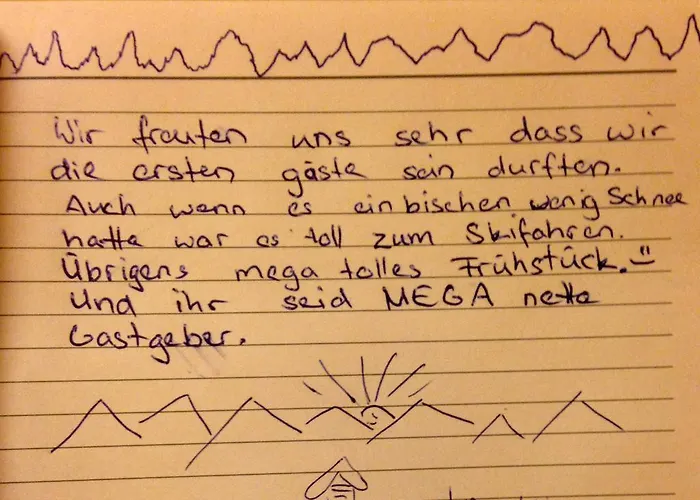 Wir freuten uns sehr dass wir
die ersten gäste sein durften.
Auch wenn es ein bischen wenig Schnee
hatte war es toll zum Skifahren.
Übrigens mega tolles Frühstück.
Und ihr seid MEGA nette
Gastgeber.